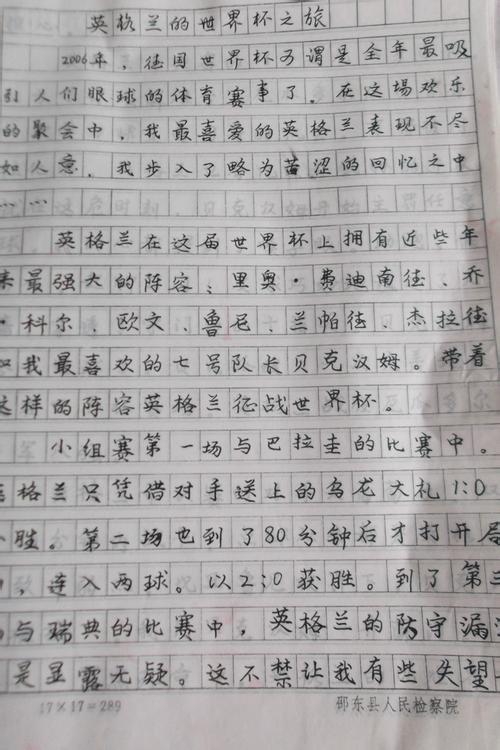 英格兰的世界杯之旅
2006年，德国世界杯可谓是全年最吸
引人们眼球的体育赛事了。在这场欢乐
的聚会中，我最喜爱的英格兰表现不尽
如人意．我步入了略为苦涩的回忆之中
……
英格兰在这届世界杯上拥有近些年
来最强大的阵容、里奥·费迪南德、乔
·科尔、欧文、鲁尼、兰帕德、杰拉德
我最喜欢的七号队长贝克汉姆。带着
这样的阵容英格兰征战世界杯。
小组赛第一场与巴拉圭的比赛中。
格兰只凭借对手送上的乌龙大礼1:0
小胜。第二场也到了80分钟后才打开局
，连入两球。以2:0获胜。到了第三
与瑞典的比赛中，英格兰的防守漏
是显露无疑。这不禁让我有些失望
17×17=289 邵东县人民检察院